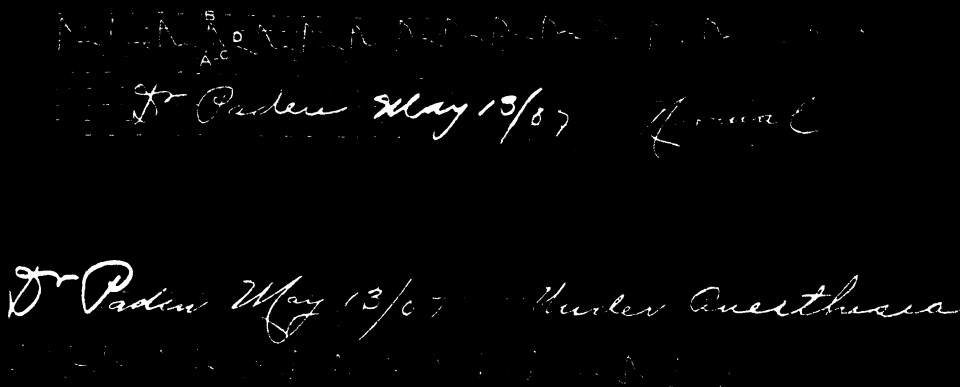 B
D
A-C
Dr Paden May 13/07 Normal
Dr Paden May 13/07 Under Anesthesia